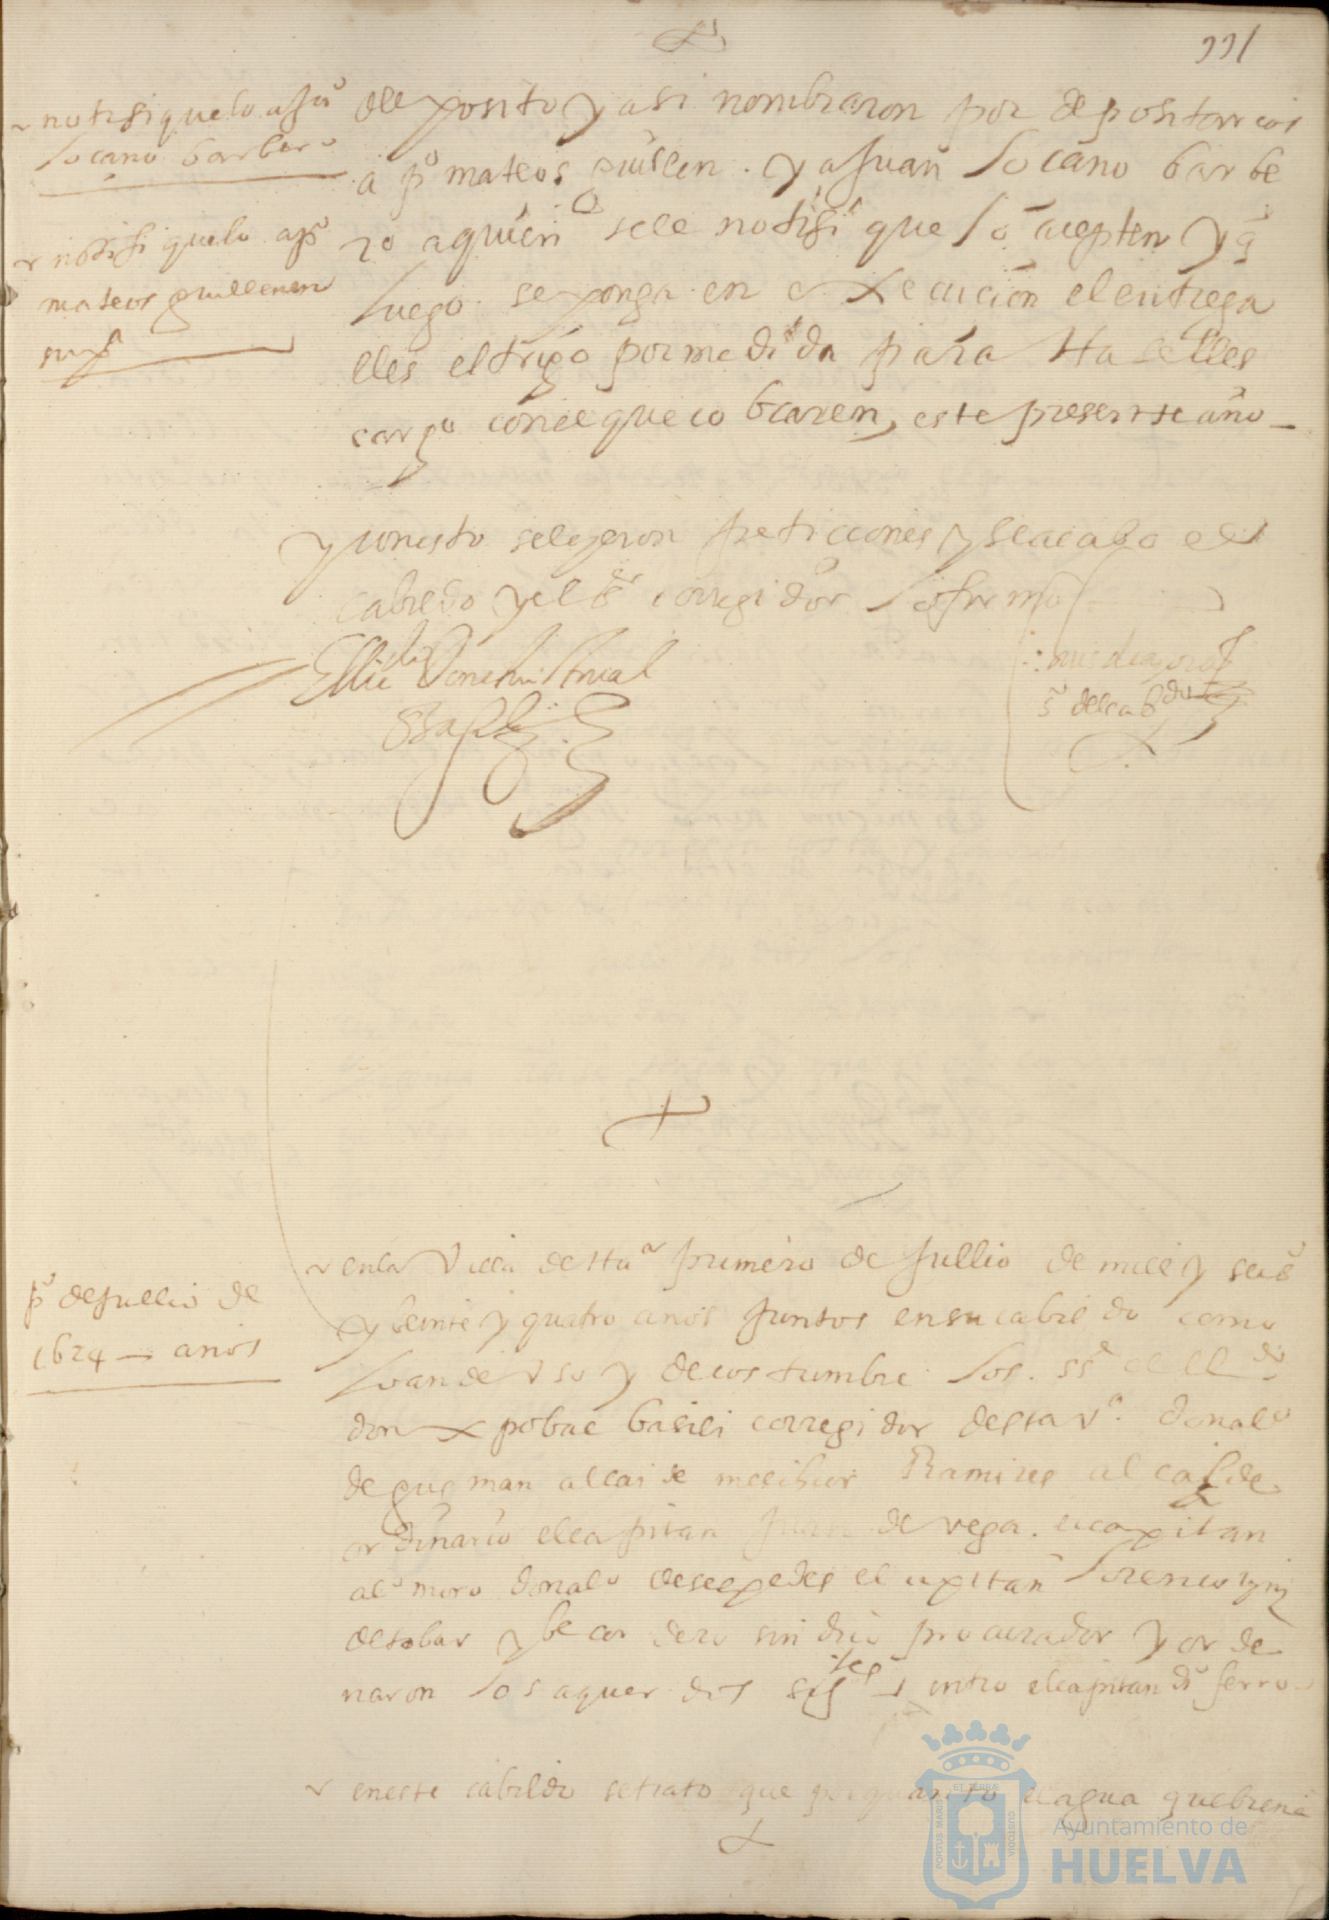 notifiquelo a Juº
locano barbero
notifiquelo a pº
mateos guillen en
su pª
deposito y asi nombraron por depositarios
a pº mateos guillen . y a Juan locano barbe
ro a quien se le notifi que lo acepten y q
luego se ponga en execucion el entrega
lles el trigo por medida para Haselles
cargo con el que cobraren, este presente año
y con esto se leyeron peticiones y se acabo el
cabildo y el sr corregidor lo firmo
sº del cabdo
pº de Jullio de
1624 — años
en la Villa de Huª primero de Jullio de mill y seisº
y beinte y quatro anos Juntos en su cabildo como
lo an de Uso y de costumbre los . sss el lldo
don xpobal basili corregidor desta vª . don alº
de gusman alcaide melchior Ramires alcalde
ordinario el capitan Juan de vega . el capitan
alº moro don alº desespedes el capitan lorenco
de tobar y becerdero sindico procurador y orde
naron los aquerdos sigtes entro el capitan dº ferro
en este cabildo se trato que por quanto el agua que biene
Ayuntamiento de
HUELVA
PORTUS MARIS
ET TERRÆ
CUSTODIA